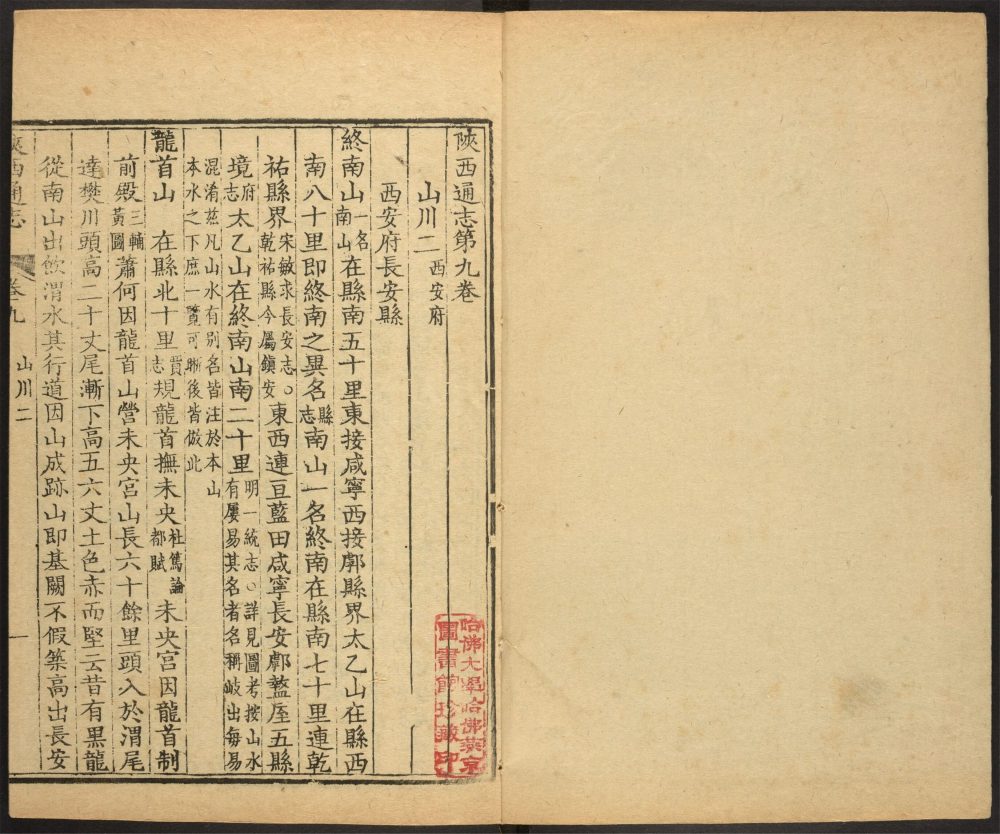 陝西通志第九卷
山川二 西安府
西安府長安縣
終南山 一名南山 在縣南五十里東接咸寧西接鄠縣界太乙山在縣西
南八十里即終南之異名 縣志 南山一名終南在縣南七十里連乾
祐縣界 宋敏求長安志○乾祐縣今屬鎮安 東西連亘藍田咸寧長安鄠盩厔五縣
境 府志 太乙山在終南山南二十里 明一統志○詳見圖考按山水有屢易其名者名稱岐出每易
混淆茲凡山水有別名皆注於本山本水之下庶一覽可晰後皆倣此
龍首山 在縣北十里 賈志 規龍首撫未央 杜篤論都賦 未央宮因龍首制
前殿 三輔黃圖 蕭何因龍首山營未央宮山長六十餘里頭入於渭尾
達樊川頭高二十丈尾漸下高五六丈土色赤而堅云昔有黑龍
從南山出飲渭水其行道因山成跡山即基闕不假築高出長安
陝西通志 卷九 山川二 一
哈佛大學哈佛燕京
圖書館珍藏印